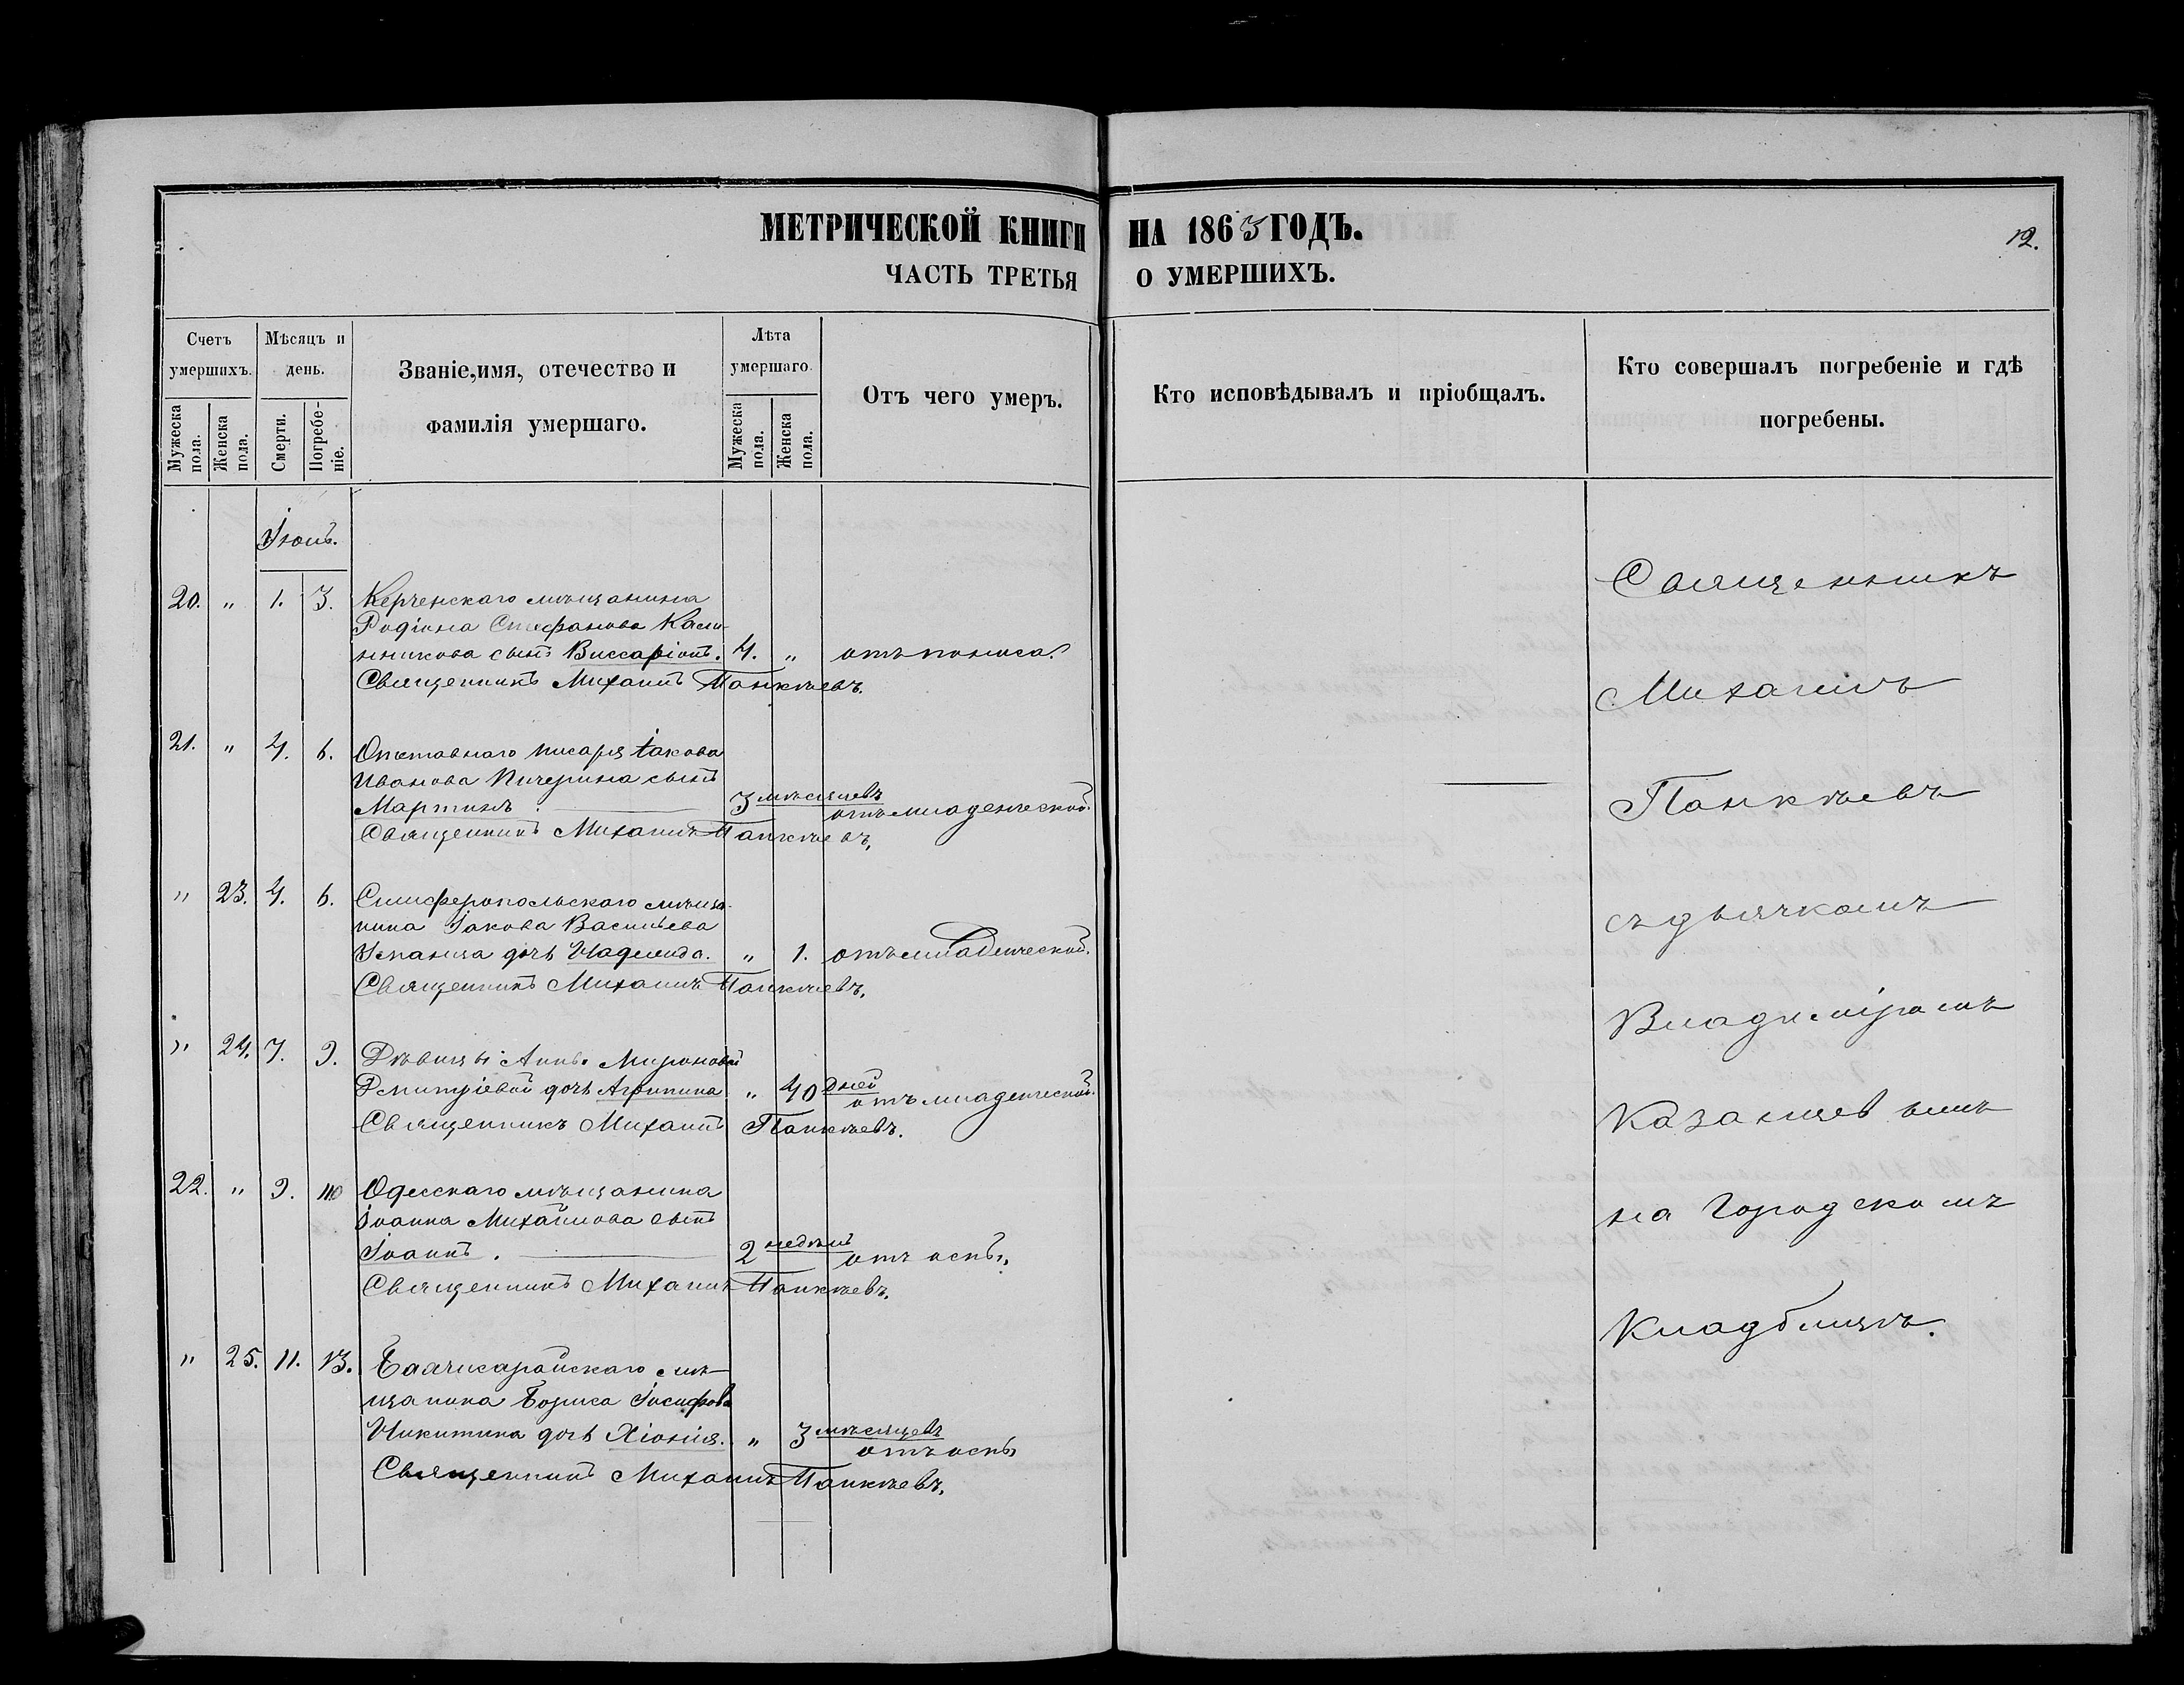 МЕТРИЧЕСКОЙ КНИГИ НА 1863 ГОДЪ.
12.
ЧАСТЬ ТРЕТЬЯ О УМЕРШИХЪ.
Счетъ умершихъ.
Мужеска пола.
Женска пола.
Мѣсяцъ и день.
Смерти.
Погребе-ніе.
Званіе,имя, отечество и
фамилія умершаго.
Лѣта умершаго.
Мужеска пола.
Женска пола.
Отъ чего умеръ.
Кто исповѣдывалъ и пріобщалъ.
Кто совершалъ погребеніе и гдѣ
погребены.
Іюнь.
20. " 1. 3. Керченскаго мѣщанина
Родіона Стефанова
сынъ Виссаріонъ. 4. " отъ поноса.
Священникъ Михаилъ Панкѣевъ.
21. " 4. 6. Отставнаго писаря Іакова
Иванова Пичерина сынъ
Мартинъ. 3 мѣсяцевъ
отъ младенческой.
Священникъ Михаилъ Панкѣевъ.
" 23. 4. 6. Симферопольскаго мѣща-
нина Іакова Васильева
дочь Надежда. " 1. отъ младенческой.
Священникъ Михаилъ Панкѣевъ.
" 24. 7. 9. Дѣвицы Анны Мироновой
Дмитріевой дочь Агрипина " 40 дней
отъ младенческой.
Священникъ Михаилъ Панкѣевъ.
22. " 9. 10 Одесскаго мѣщанина
Іоанна Михайлова сынъ
Іоаннъ. 2 недѣль
отъ оспы.
Священникъ Михаилъ Панкѣевъ.
" 25. 11. 13. Бахчисарайскаго мѣ-
щанина Бориса Іосифова
Никитина дочь Хіонія. " 3 мѣсяцевъ
отъ оспы
Священникъ Михаилъ Панкѣевъ.
Священникъ
Михаилъ
Панкѣевъ
съ дьячкомъ
Владиміромъ
Казанцевымъ
на Городскомъ
Кладбищѣ.